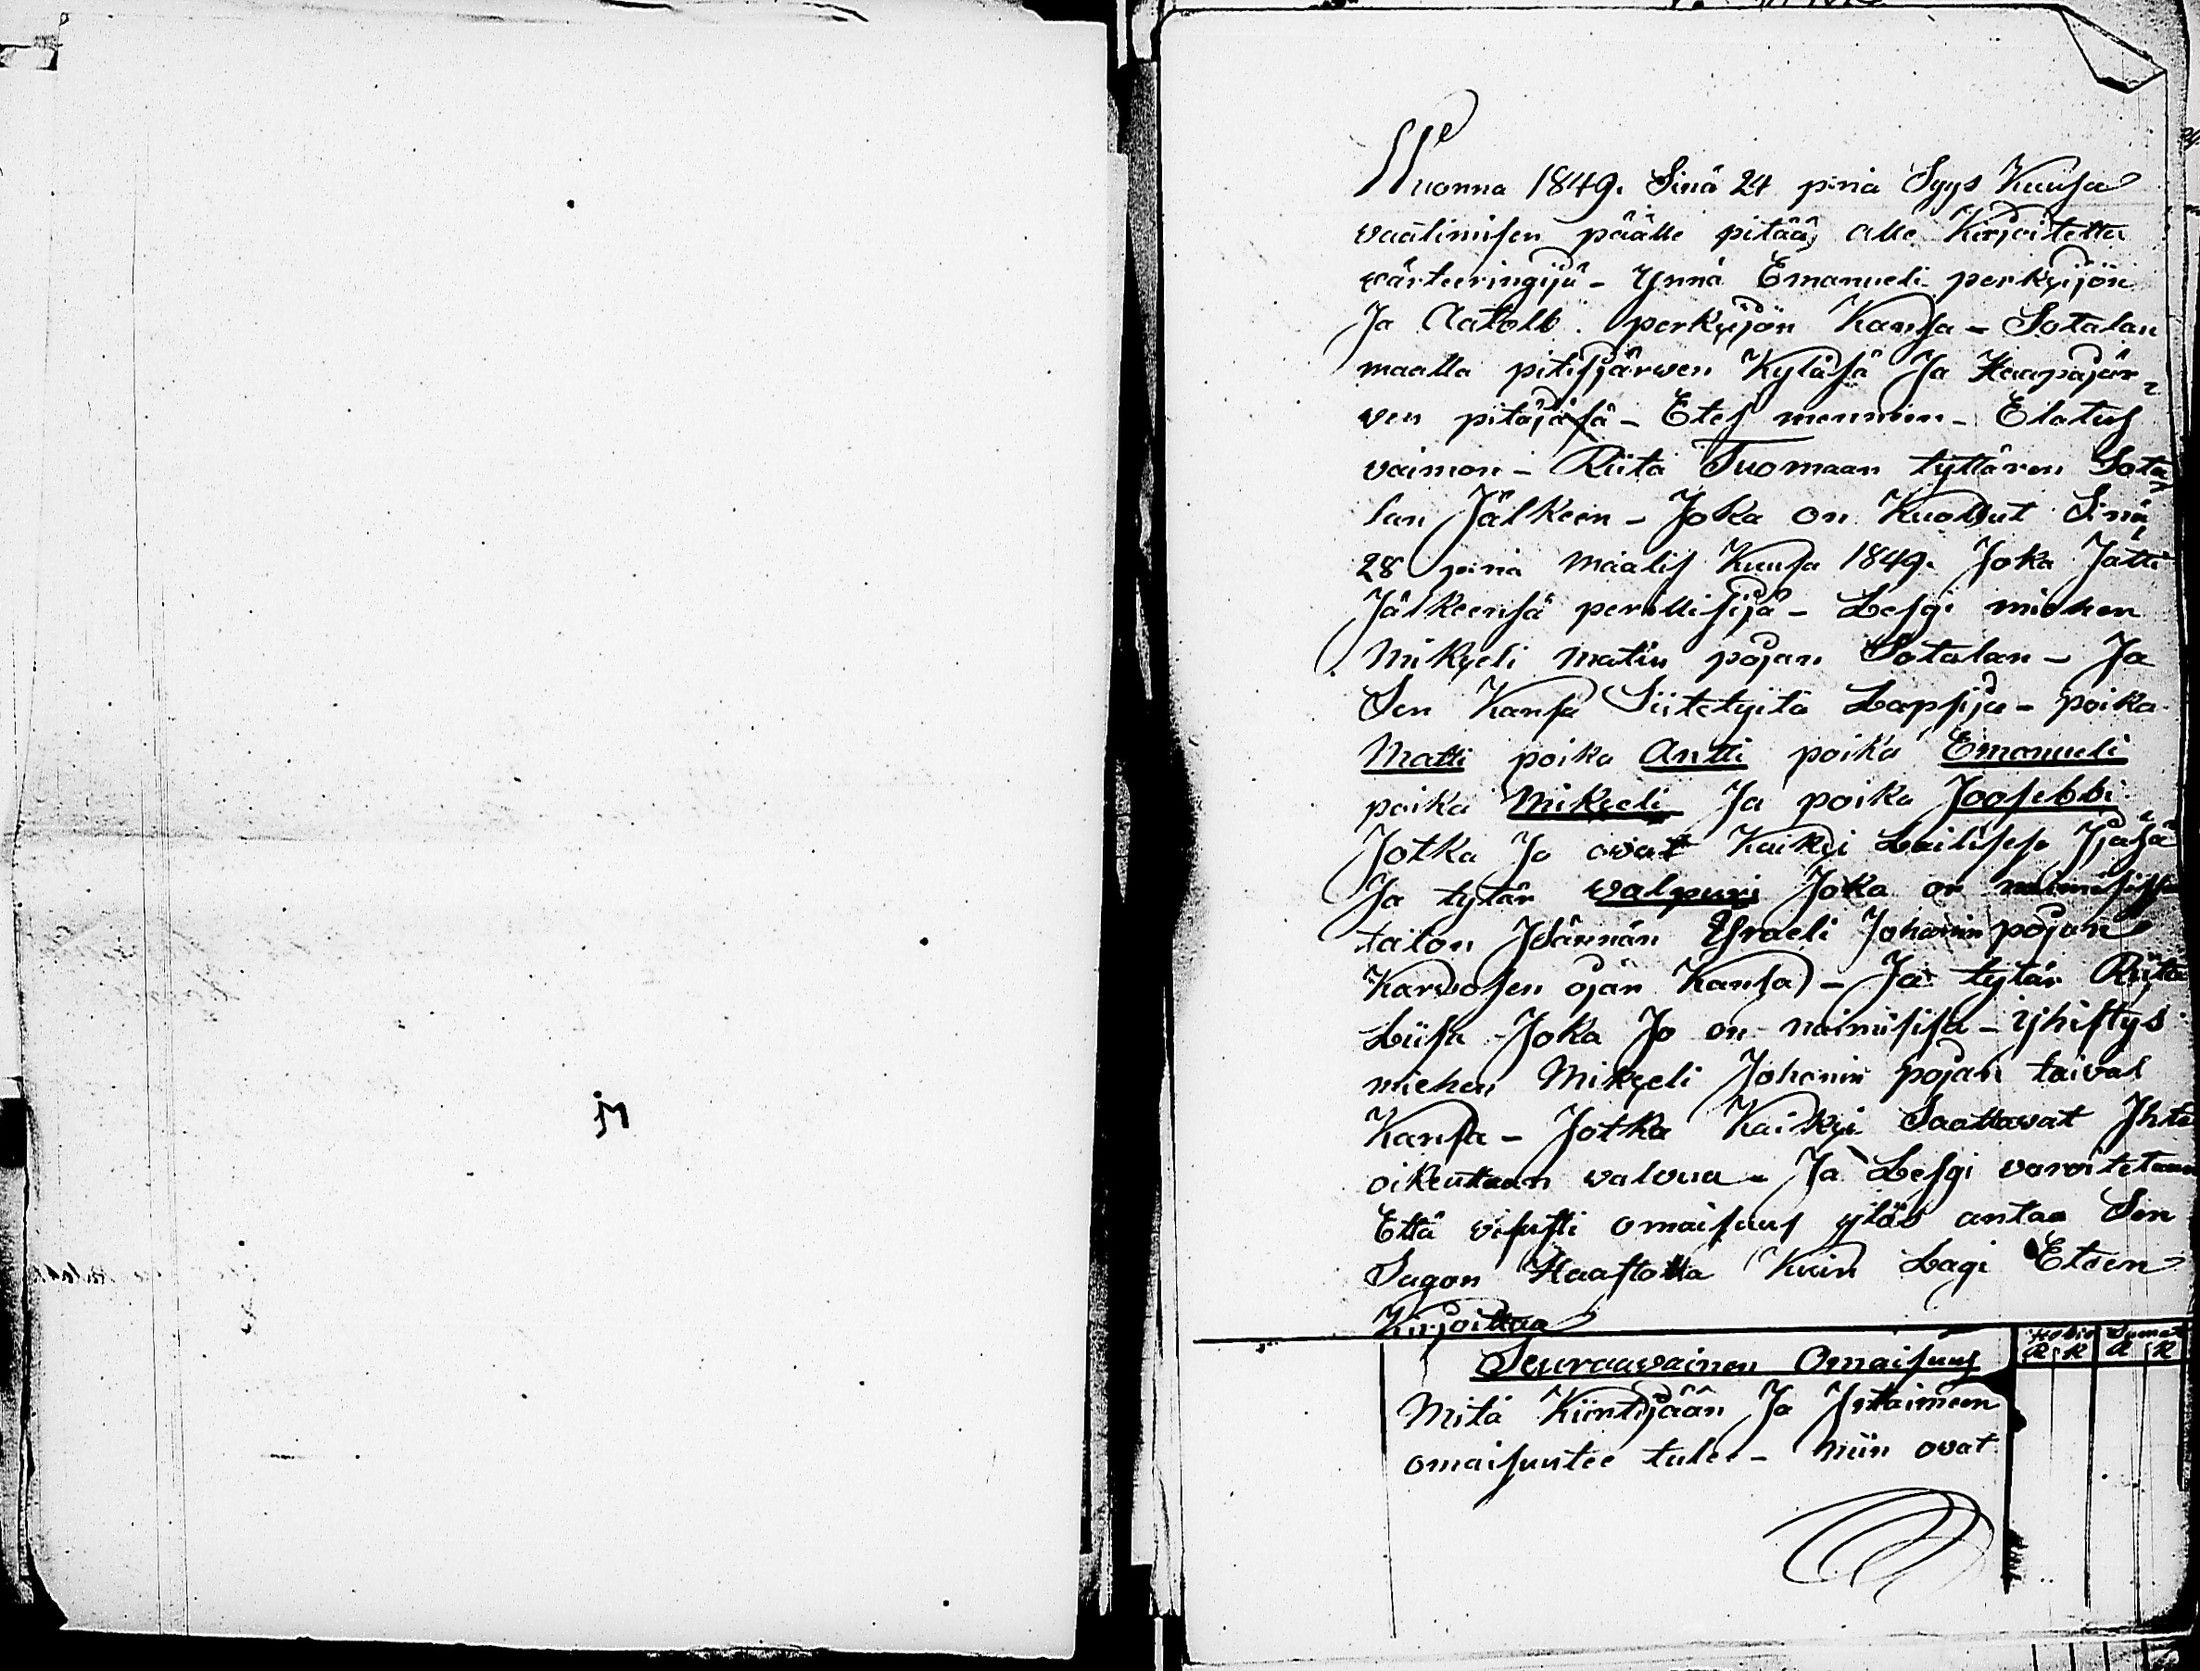 Wuonna 1849. Sinä 24 pnä Syys Kuusa
vaatimisen päälle pitää alle Kirjoitettu
värteeringijä - Ynnä Emanueli perkyijön
Ja Aatolb perkyijön Kansa - Sotalan
maalla pitisjärwen Kyläsä Ja Haapajär-
wen pitäjäsä - Etes mennien - Elatus
vaimon - Riita Tuomaan tyttären Sota
lan Jälkeen - Joka on Kuollut Sinä
28 pnä Maalis Kuusa 1849. Joka Jätti
Jälkeensä perillisijä - Lesgi miehen
Mikyeli Matin pojan Sotalan - Ja
Sen Kansa Siitetyitä Lapsija - poika
Matti poika Antti poika Emanueli
poika Mikyeli Ja poika Joosebbi
Jotka Jo ovat Kaikyi Lailisesa Jjäsä
Ja tytär Walpuri Joka on naimisisa
talon Isännän Ysraeli Johanin pojan
Karwosen ojan Kansa - Ja tytär Riita
Liisa Joka Jo on naimisisa - Yhistys
miehen Mikyeli Johanin pojan taival
Kansa - Jotka Kaikyi Saattavat Ihte
oikeuttaan walvua - Ja Lesgi varoitetaan
Että visusti omaisuus ylös antaa Sen
Sugon Haastolla Kuin Lagi Eteen
Kirjoittaa
Seuraawainen Omaisuus
R K R K
Mitä Kiintijään Ja Irtaimeen
omaisuutee tulee - niin ovat